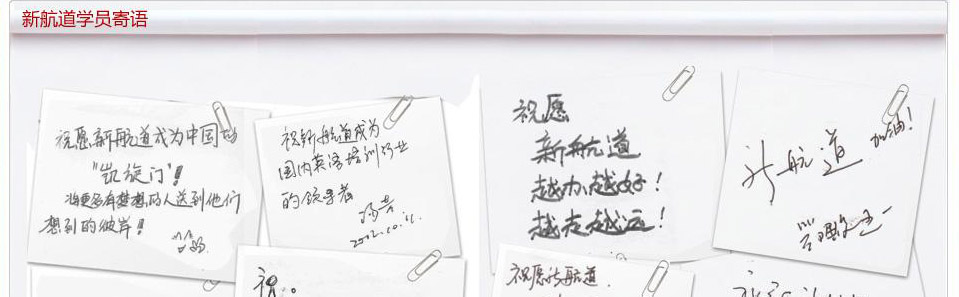 新航道学员寄语
祝愿新航道成为中国的
"凯旋门"!
将更多有梦想的人送到他们
想到的彼岸!
祝新航道成为
国内英语培训行业
的领导者
2002.10.11.
祝愿
新航道
越办越好!
越走越远!
新航道 加油!
祝
祝愿新航道